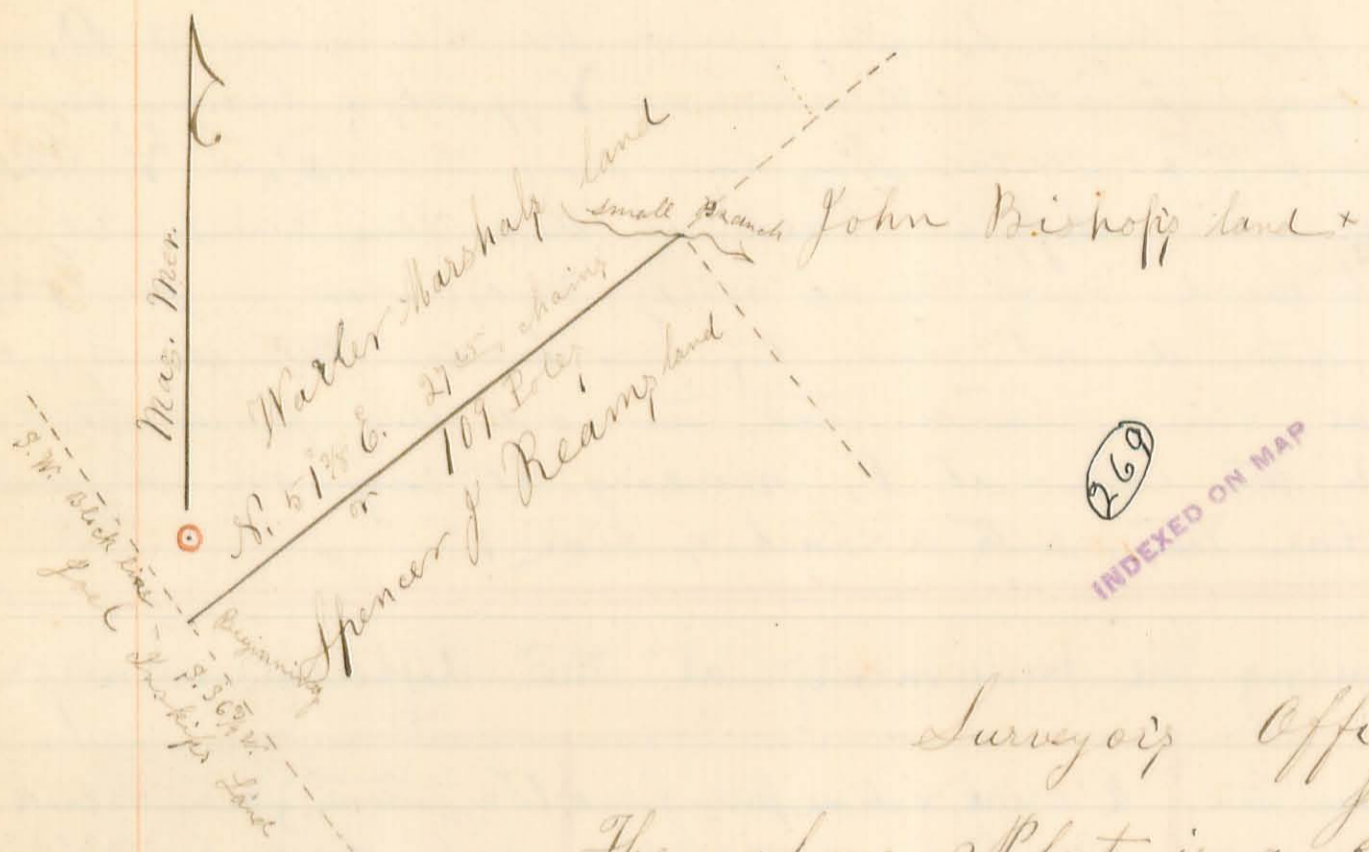 Mag. Mer.
Walter Marshals land
small Branch
John Bishop's land +
N. 51 3/8° E. 27 25 chains
or 109 Poles
Spencer J Reams land
Beginning
S.W. Block line
Joel Inskips Land
269
INDEXED ON MAP
Surveyor's Offi
The above Plat is a